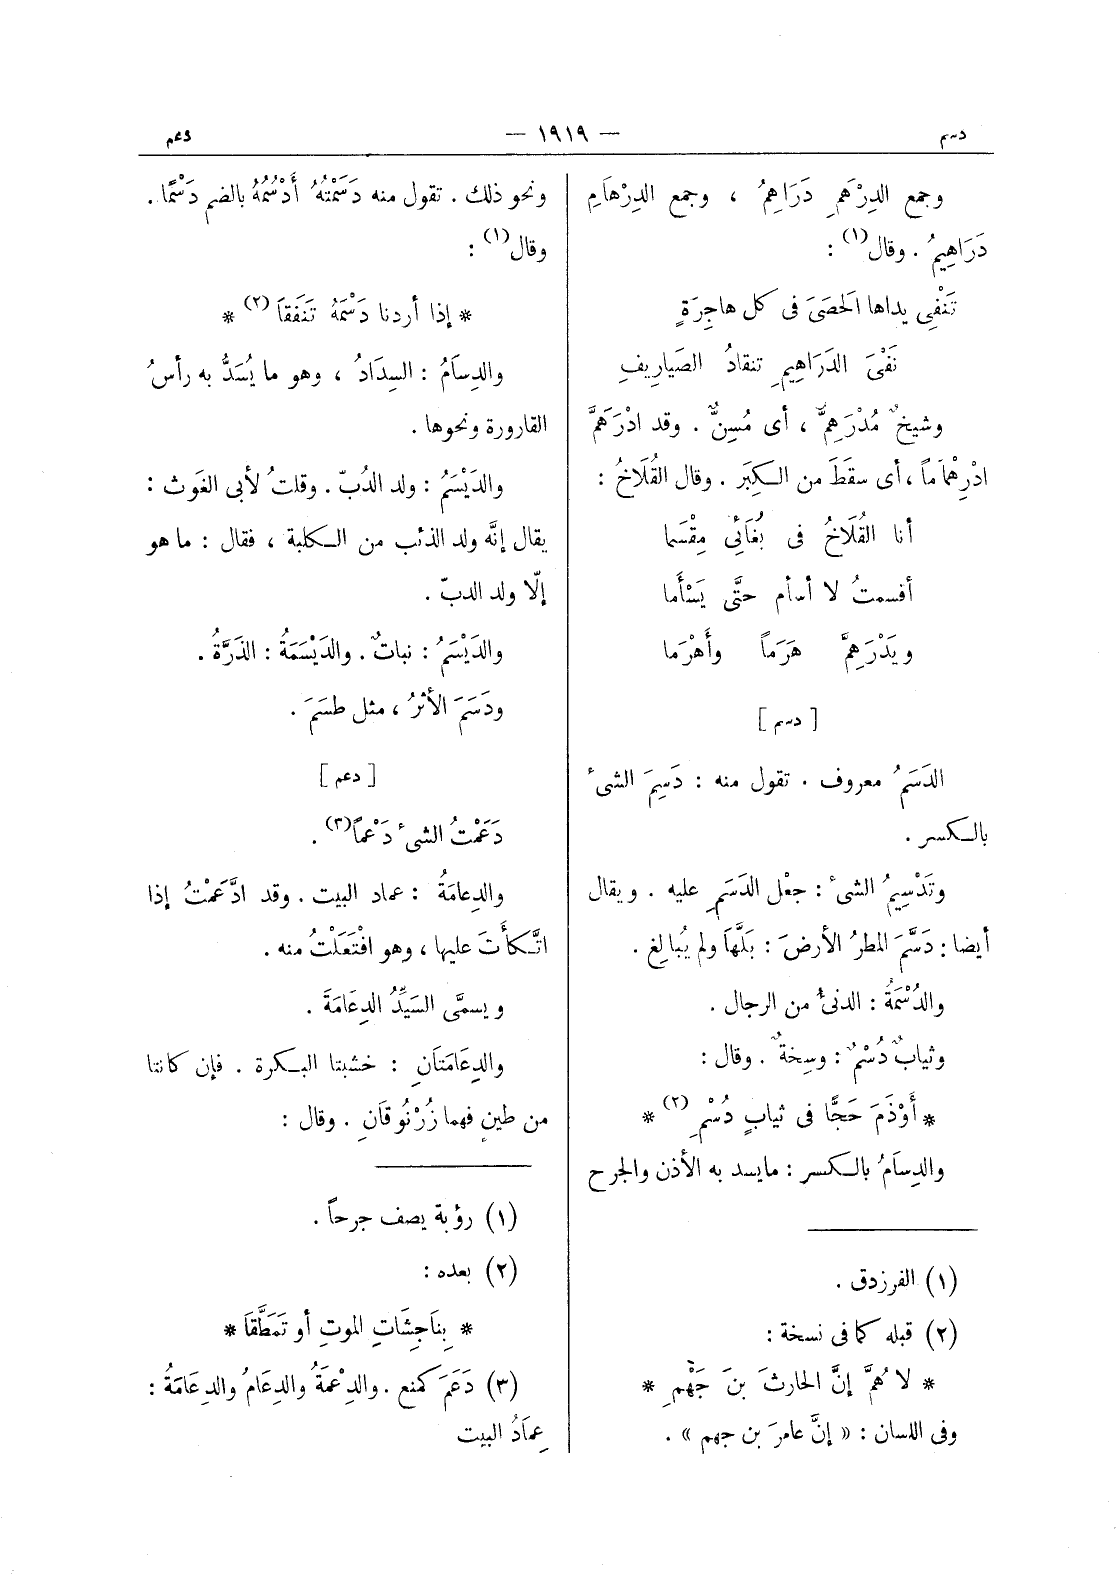 دسم — ١٩١٩ — دعم
وجمع الدِرْهَمِ دَرَاهِمُ ، وجمع الدِرْهَامِ
دَرَاهِيمُ . وقال(١) :
تَنْفِى يداها الَحصَىَ فى كل هاجِرَةٍ
نَفْىَ الدَرَاهِيمِ تنقادُ الصَيارِيفِ
وشيخٌ مُدْرَهِمٌّ ، أى مُسِنٌّ . وقد ادْرَهَمَّ
ادْرِهْمَاماً ، أى سقَطَ من الكِبَر . وقال القُلَاخُ :
أنا القُلَاخُ فى بُغَائِى مِقْسَما
أقسمتُ لا أسأم حتَّى يَسْأَما
ويَدْرَهِمَّ هَرَماً وأَهْرَما
[ دسم ]
الدَسَمُ معروف . تقول منه : دَسِمَ الشىءُ
بالكسر .
وتَدْسِيمُ الشىءُ : جعْل الدَسَمِ عليه . ويقال
أيضا : دَسَّمَ المطرُ الأرضَ : بَلَّهَا ولم يُبالِغ .
والدُسْمَةُ : الدنئُ من الرجال .
وثيابٌ دُسْمٌ : وسِخةٌ . وقال :
* أَوْذَمَ حَجًّا فى ثيابٍ دُسْمِ (٢) *
والدِسَامُ بالكسر : مايسد به الأذن والجرح
(١) الفرزدق .
(٢) قبله كما فى نسخة :
* لاهُمَّ إنَّ الحارثَ بنَ جَهْمِ *
وفى اللسان : « إنَّ عامرَ بن جهم » .
ونحو ذلك . تقول منه دَسَمْتُهُ أَدْسُمُهُ بالضم دَسْمًا .
وقال(١) :
* إذا أردنا دَسْمَهُ تَنَفَّقَا (٢) *
والدِسَامُ : السِدَادُ ، وهو ما يُسَدُّ به رأسُ
القارورة ونحوها .
والدَيْسَمُ : ولد الدُبّ . وقلتُ لأبى الغَوث :
يقال إنَّه ولد الذئب من الكلبة ، فقال : ما هو
إلّا ولد الدبّ .
والدَيْسَمُ : نباتٌ . والدَيْسَمَةُ : الذَرَّةُ .
ودَسَمَ الأثرُ ، مثل طسَمَ .
[ دعم ]
دَعَمْتُ الشىءُ دَعْماً(٣) .
والدِعامَةُ : عماد البيت . وقد ادَّعَمْتُ إذا
اتَّكأْتَ عليها ، وهو افْتَعَلْتُ منه .
ويسمَّى السَيِّدُ الدِعَامَةَ .
والدِعامَتَانِ : خشبتا البكرة . فإن كانتا
من طينٍ فهما زُرْنُوقَانِ . وقال :
(١) رؤبة يصف جرحاً .
(٢) بعده :
* بِنَاجِشَاتِ الموتِ أو تَمَطَّقَا *
(٣) دَعَمَ كمنع . والدِعْمَةُ والدِعَامُ والدِعَامَةُ :
عِمَادُ البيت